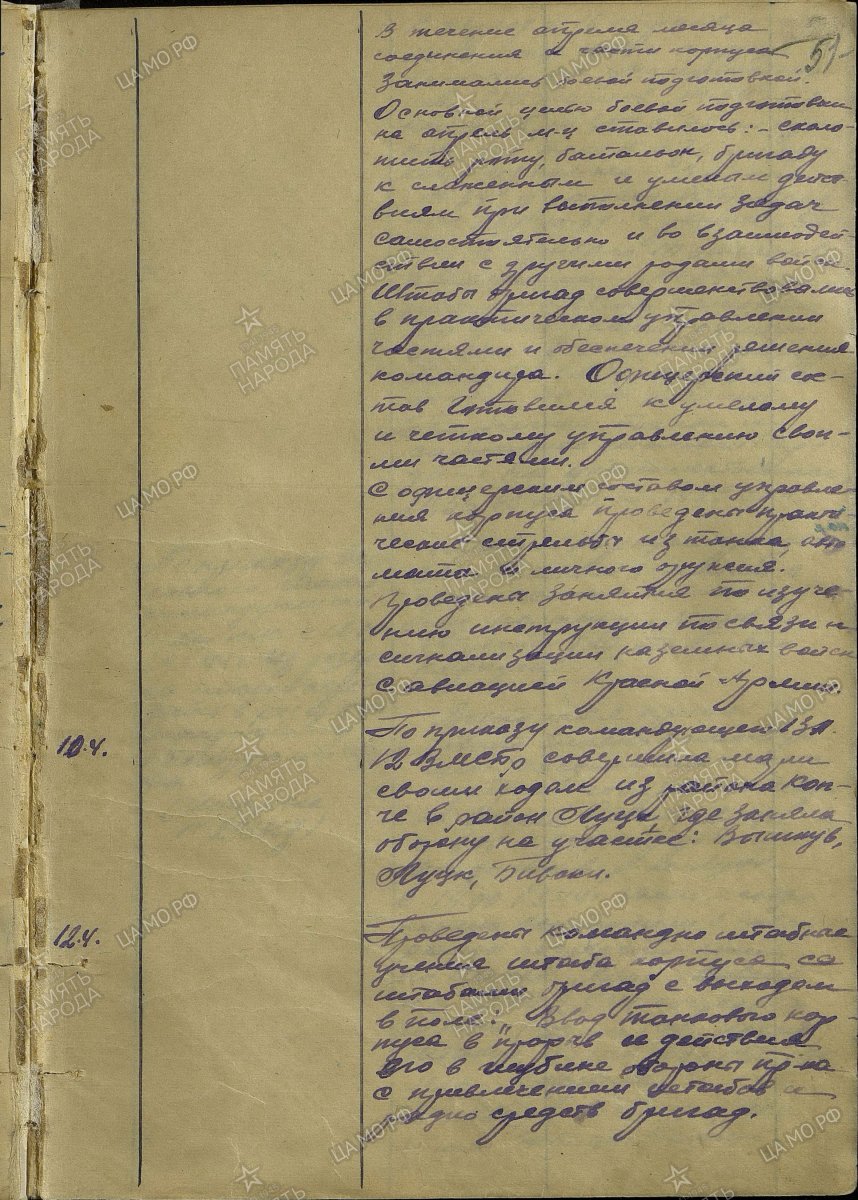 51
В течение апреля месяца
соединения и части корпуса
занимались боевой подготовкой.
Основной целью боевой подготовки
на апрель м-ц ставилось: - сколо-
тить роту, батальон, бригаду
к слаженным и умелым дейст-
виям при выполнении задач
самостоятельно и во взаимодей-
ствии с другими родами войск.
Штабы бригад совершенствовались
в практическом управлении
частями и обеспечении решения
командира. Офицерский сос-
тав готовился к умелому
и четкому управлению свои-
ми частями.
С офицерским составом управле-
ния корпуса проведены практи-
ческие стрельбы из танка, авто
мата и личного оружия.
Проведены занятия по изуче-
нию инструкции по связи и
сигнализации наземных войск
с авиацией Красной Армии.
10.4. По приказу командующего 13А.
12 мсбр совершила марш
своим ходом из района
в район Луцк где заняла
оборону на участке:
Луцк,
12.4. Проведены командно штабные
учения штаба корпуса со
штабами бригад с выходом
в поле: "Ввод танкового кор-
пуса в прорыв и действия
его в глубине обороны пр-ка
с привлечением штабов и
радио средств бригад.
ЦА МО РФ
ПАМЯТЬ
НАРОДА